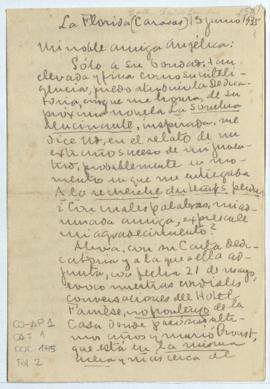 La Florida (Caracas) 13 junio 1935
Mi noble amiga Angélica:
Sólo a su bondad, tan
elevada y fina como su inteli-
gencia, puedo atribuir la dedica-
toria, con que me honra de su
próxima novela La Sombra
alucinante, inspirada, me
dice Ud, en el relato de un
extraño suceso de mi juven-
tud, probablemente un mo-
mento en que me entregaba
A la recherche du temps perdu
¿Con cuales palabras, mi ad-
mirada amiga, expresarle
mi agradecimiento?
Ahora, con su Carta dedi-
catoria y a la que ella ad-
junta, con fecha 21 de mayo,
evoco nuestras cordiales
conversaciones del Hotel
Farnese, no frontero de la
Casa donde
años y murió Proust,
que está en la misma
acera y más cerca de
CO-AP 1
CAJ 1
DOC 1775
Fol 2